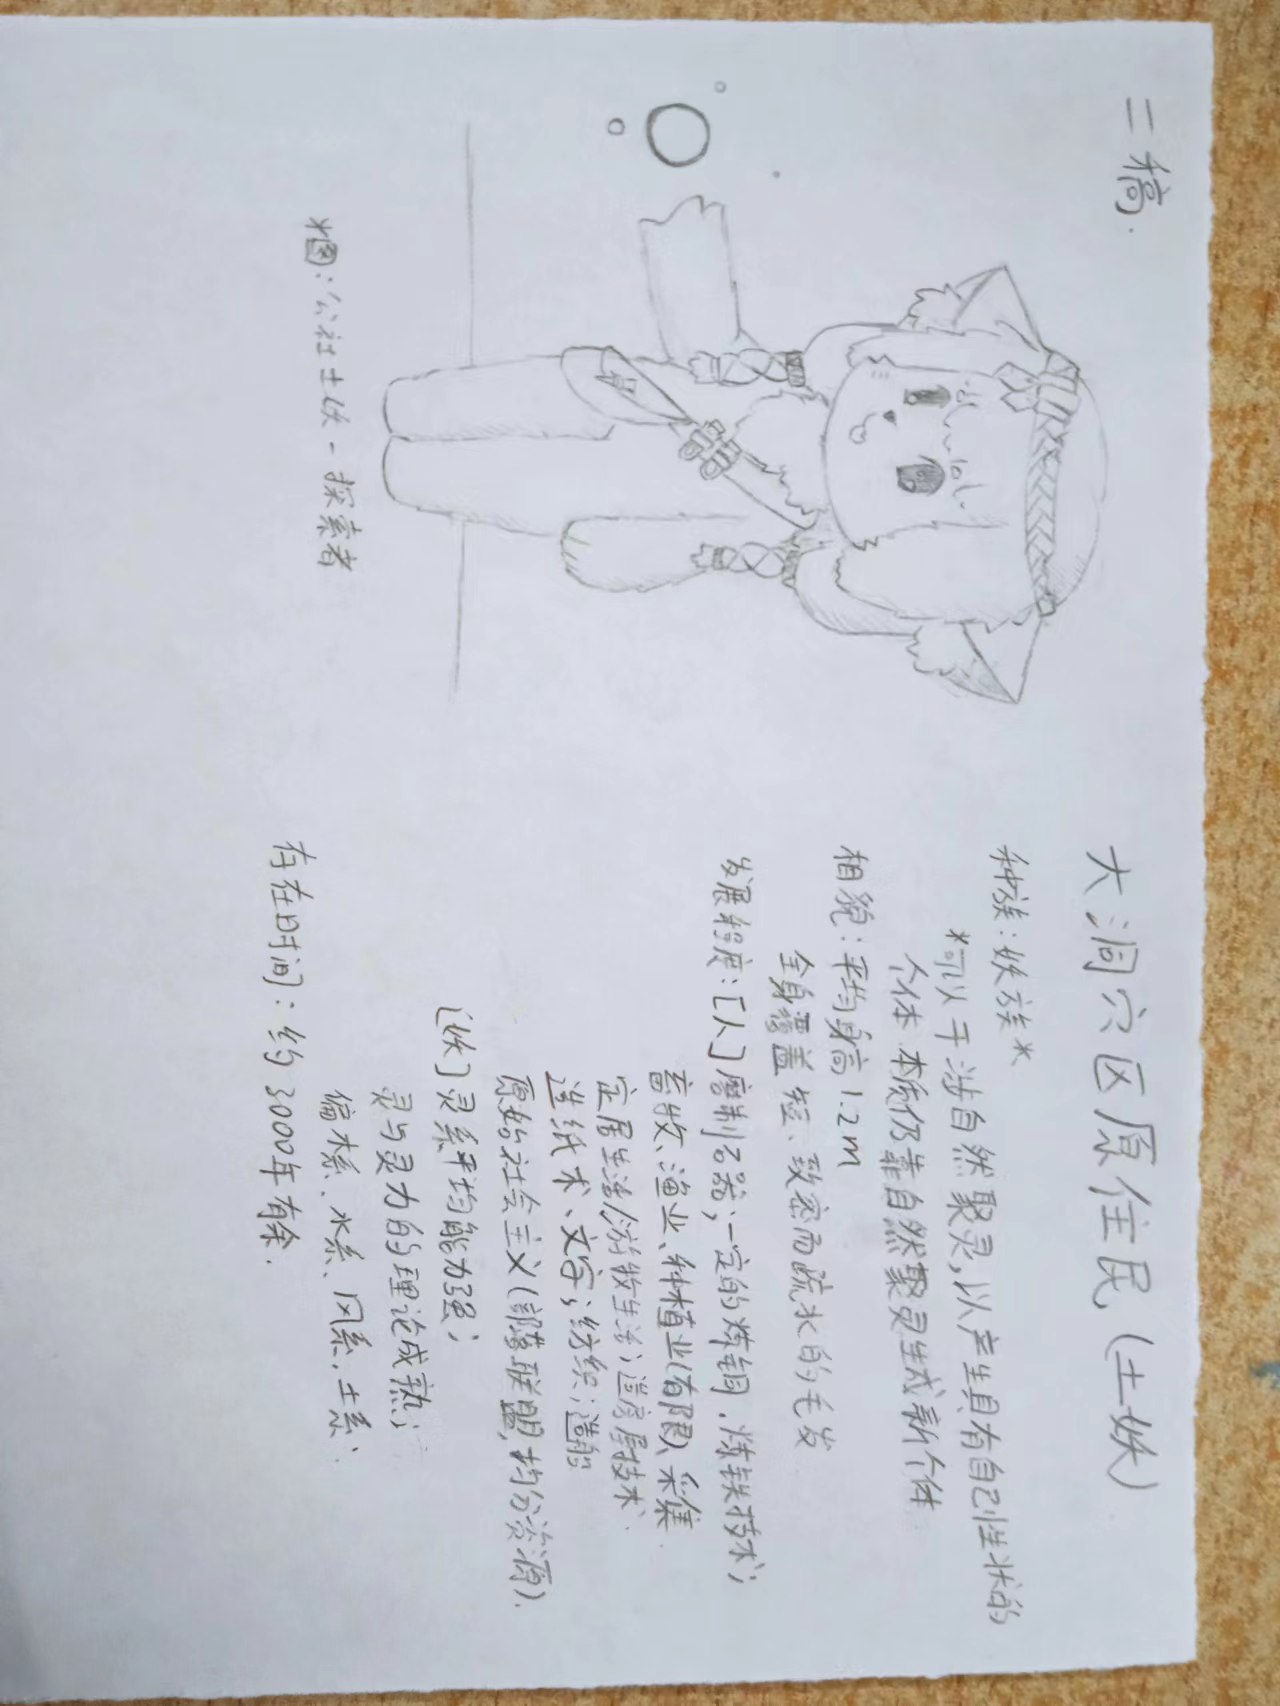 二稿.
大洞穴区原住民(土妖)
种族:妖族*
*可以干涉自然聚灵,以产生具有自己性状的
个体.本质仍靠自然聚灵生成新个体
相貌:平均身高1.2m
全身覆盖短、致密而疏水的毛发
发展程度:[人]磨制石器;一定的炼铜、炼铁技术;
畜牧、渔业、种植业(有限)、采集.
定居生活/游牧生活;造房屋技术.
造纸术、文字;纺织;造船
原始社会主义(部落联盟,均分资源).
[妖]灵系平均能力强;
灵与灵力的理论成熟;
偏木系、水系、风系、土系.
存在时间:约3000年有余.
*图:公社土妖-探索者